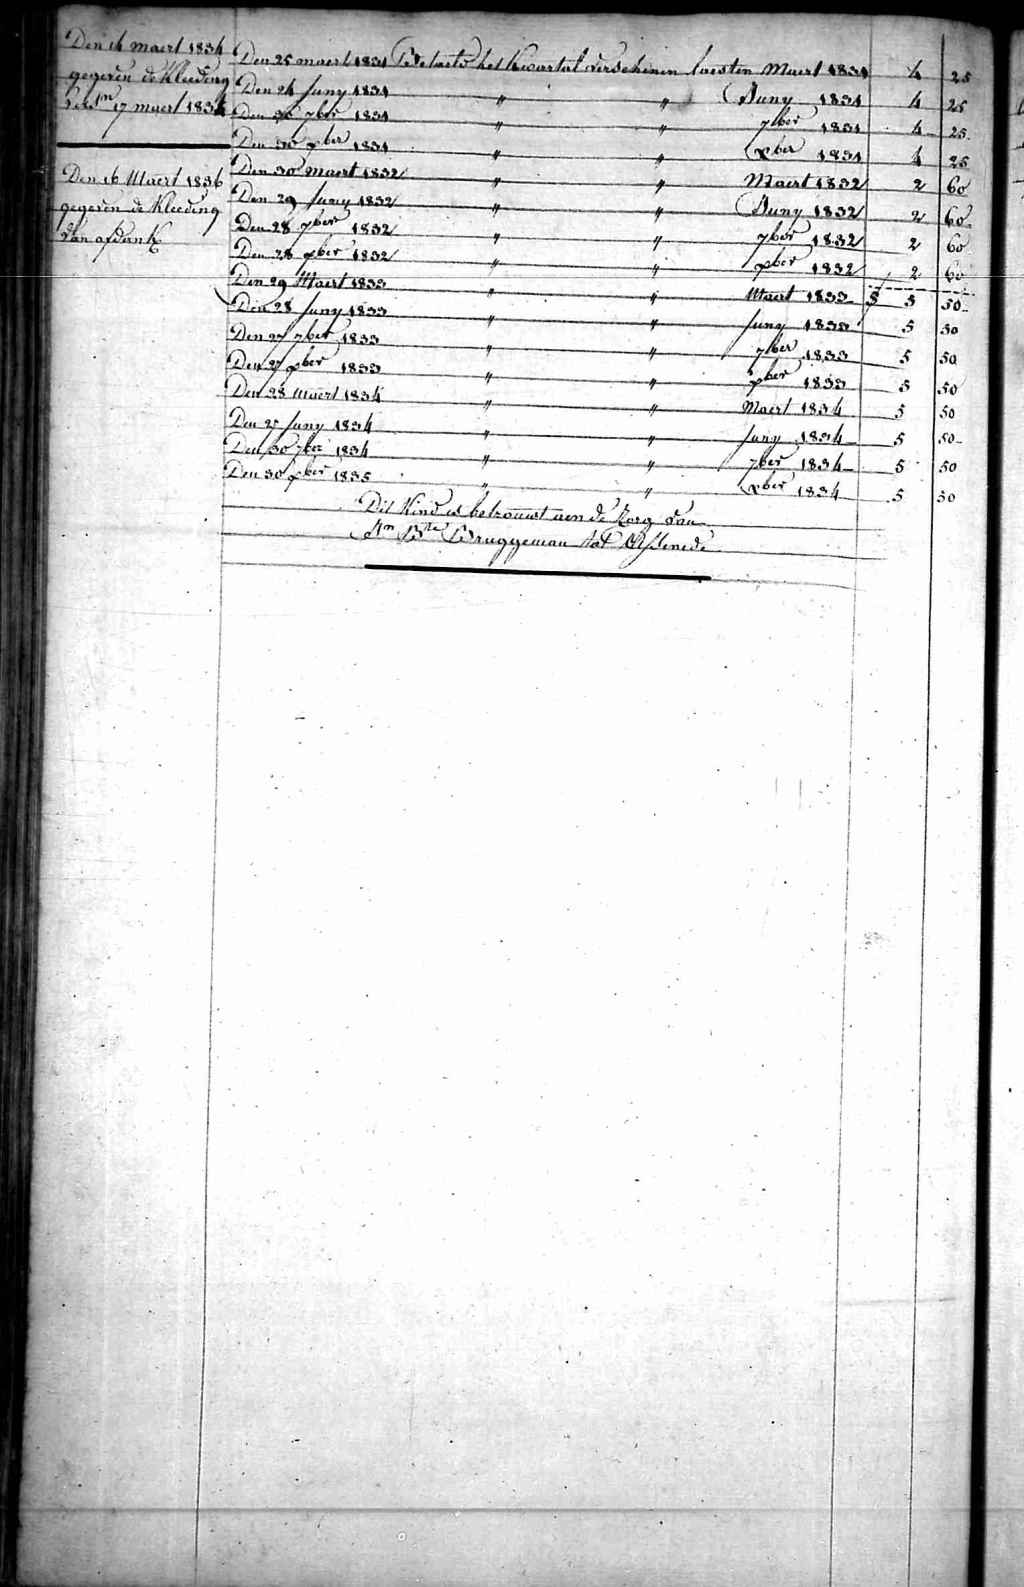 Den 16 maert 1834
gegeven de Kleeding
17 maert 1834
Den 16 Maert 1836
gegeven de Kleeding
van
Den 25 maert 1831 Betaeld het Kwartal verschenen laesten Maert 1831 4 25
Den 24 Juny 1831 " " Juny 1831 4 25
Den 30 7ber 1831 " " 7ber 1831 4 25
Den 30 xber 1831 " " xber 1831 4 25
Den 30 maert 1832 " " Maert 1832 2 60
Den 29 Juny 1832 " " Juny 1832 2 60
Den 28 7ber 1832 " " 7ber 1832 2 60
Den 28 xber 1832 " " xber 1832 2 60
Den 29 Maert 1833 " " Maert 1833 5 50
Den 28 Juny 1833 " " Juny 1833 5 50
Den 27 7ber 1833 " " 7ber 1833 5 50
Den 27 xber 1833 " " xber 1833 5 50
Den 28 Maert 1834 " " Maert 1834 5 50
Den 27 Juny 1834 " " Juny 1834 5 50
Den 30 7ber 1834 " " 7ber 1834 5 50
Den 30 xber 1835 " " xber 1834 5 50
Dit Kind is betrouwt aen de Zorg van
Bruggeman tot Assenede